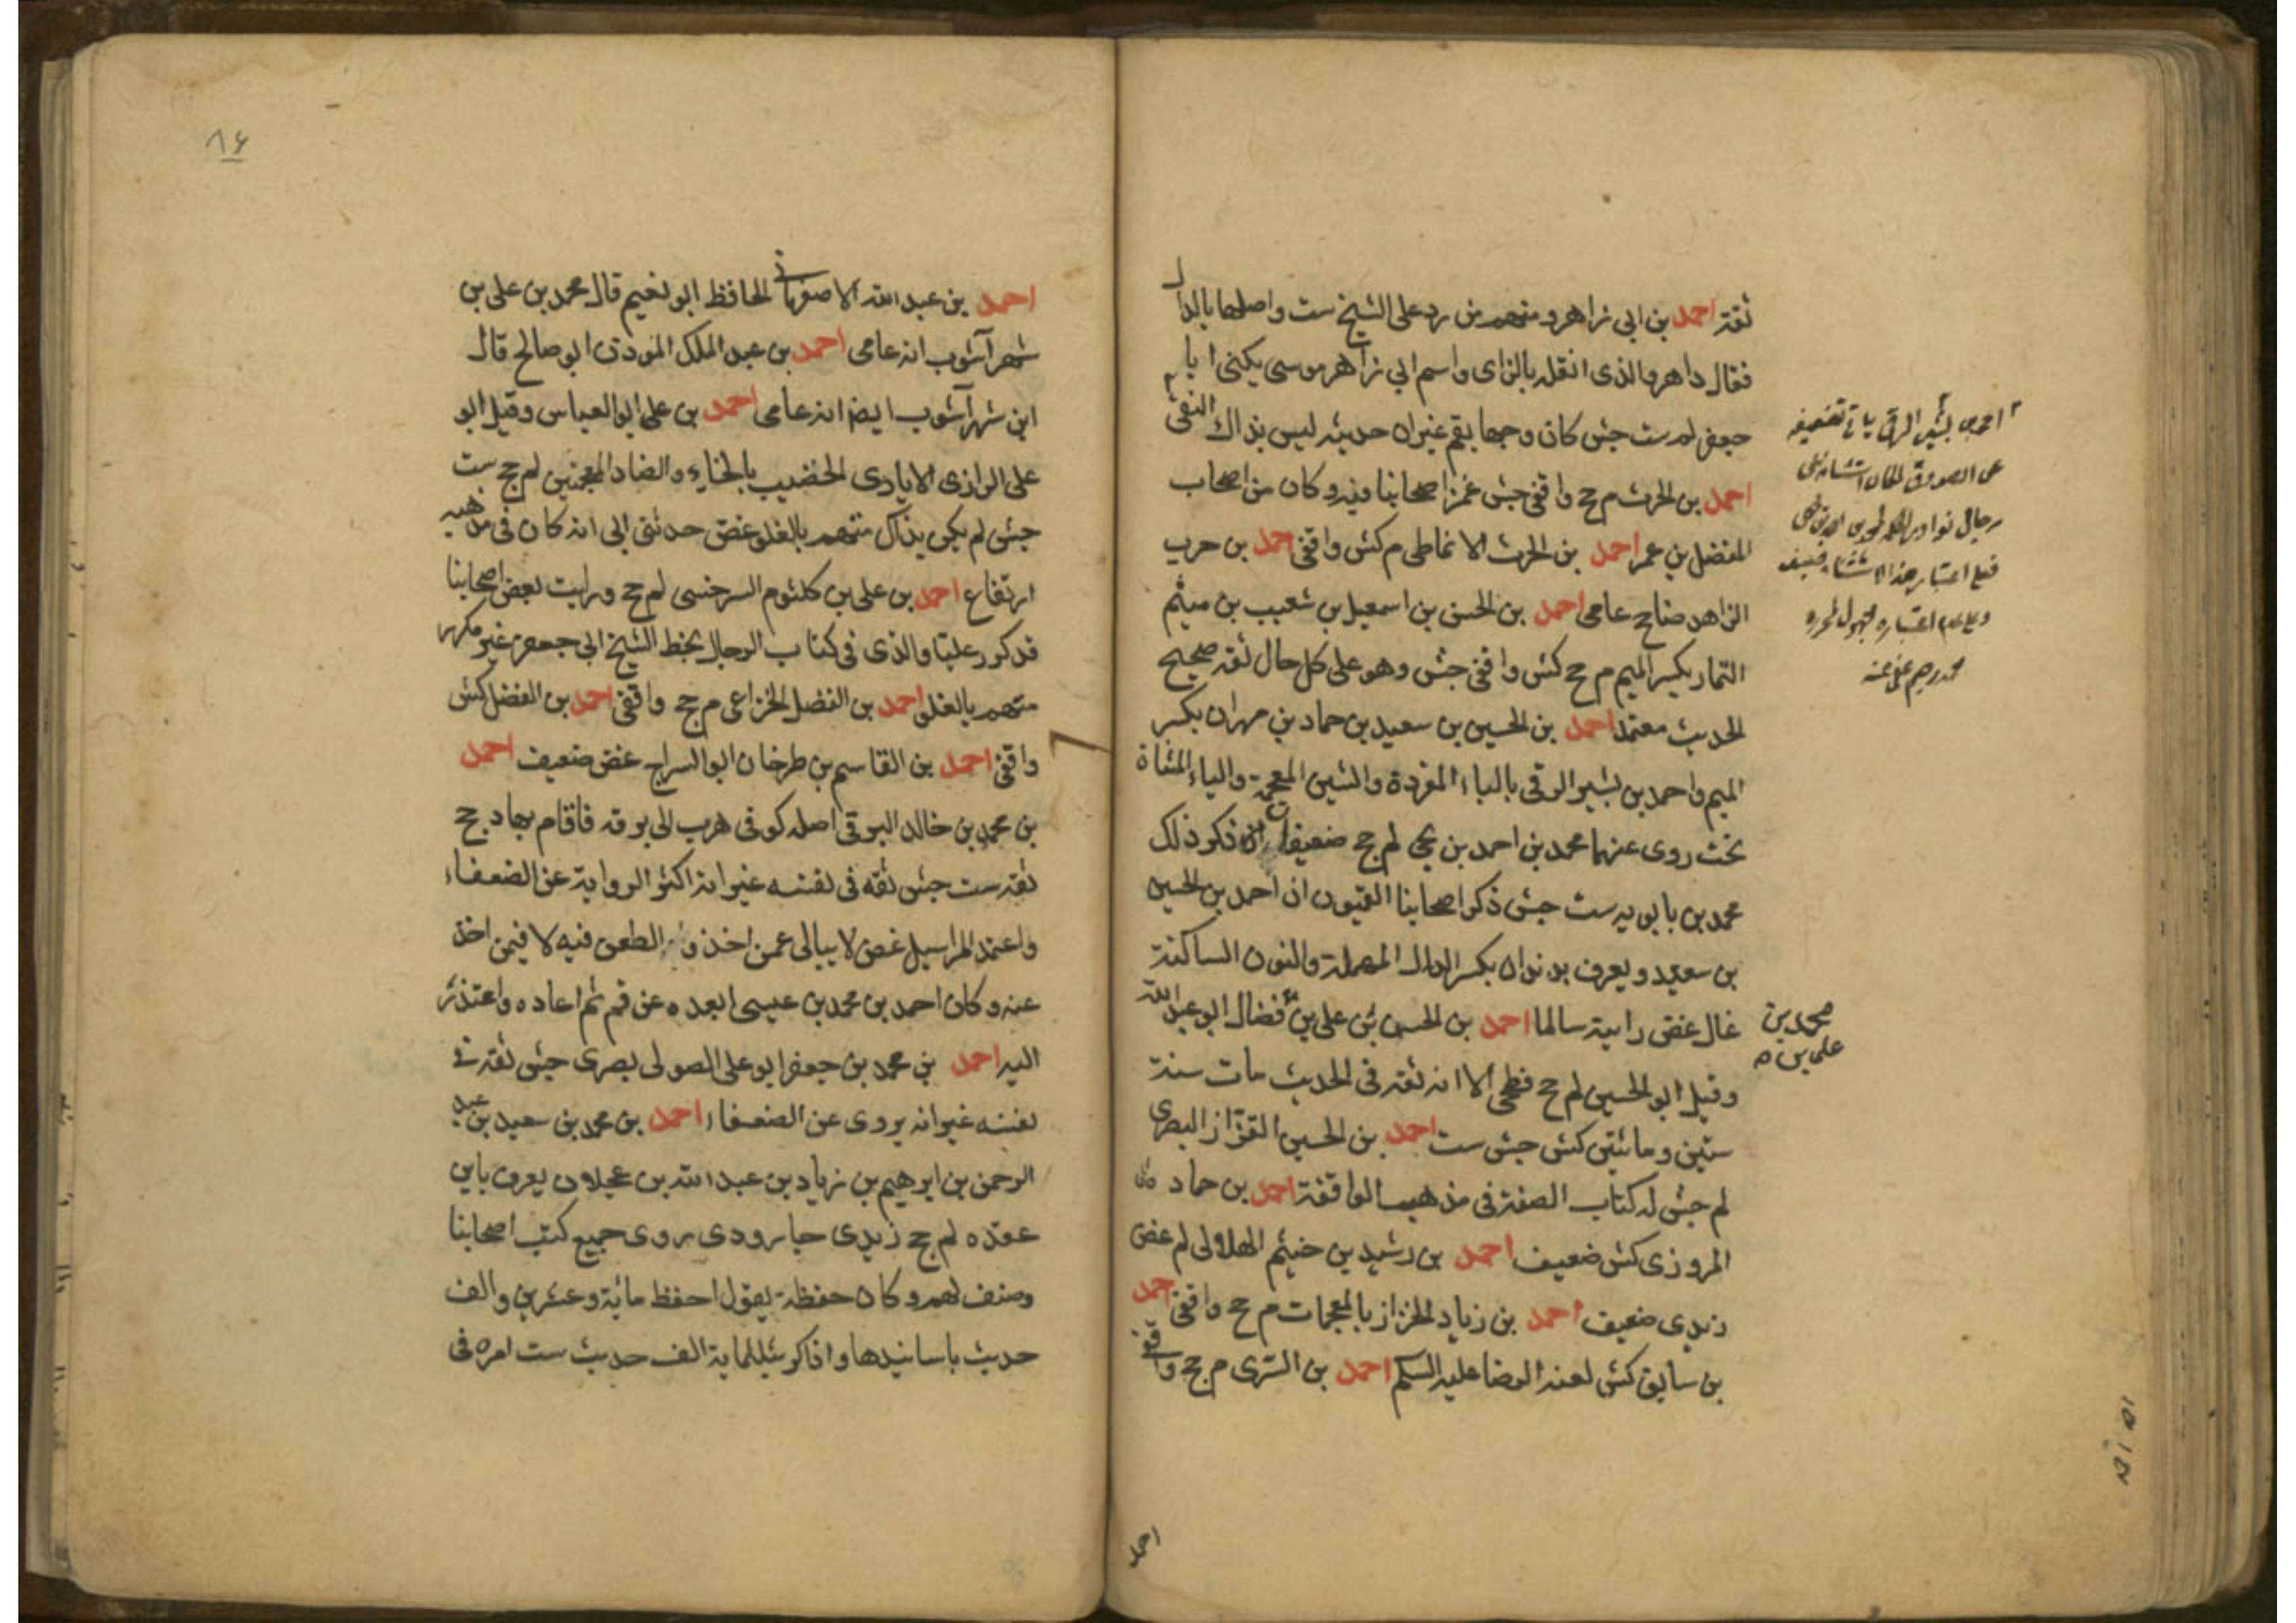 ثقة احمد بن ابي زاهر ومنهم من رد على الشيخ ست واصلها بالدال
فقال داهر والذى انقله بالزاى واسم ابي زاهر موسى يكنى ابا
جعفر لم ست جش كان وجها بقم غير ان حديثه ليس بذاك النقى
احمد بن الحرث م جح واقفى جش غمز اصحابنا فيه وكان من اصحاب
المفضل بن عمر احمد بن الحرث الانماطى م كش واقفى احمد بن حرب
الزاهد صالح عامى احمد بن الحسن بن اسمعيل بن شعيب بن ميثم
التمار بكسر الميم م جح كش واقفى جش وهو على كل حال ثقة صحيح
الحديث معتمد احمد بن الحسين بن سعيد بن حماد بن مهران بكسر
الميم واحمد بن بشير الرقى بالباء المفردة والشين المعجمة والياء المثناة
تحت روى عنهما محمد بن احمد بن يحيى لم جح ضعيفان ذكر ذلك
محمد بن بابويه ست جش ذكر اصحابنا القميون ان احمد بن الحسين
بن سعيد ويعرف بدندان بكسر الدال المهملة والنون الساكنة
غال غض رايته سالما احمد بن الحسن بن على بن فضال ابو عبد الله
وقيل ابو الحسين لم جح فطحى الا انه ثقة فى الحديث مات سنة
ستين ومائتين كش جش ست احمد بن الحسين القزاز البصرى
لم جش له كتاب الصفة فى مذهب الواقفة احمد بن حماد
المروزى كش ضعيف احمد بن رشيد بن خيثم الهلالى لم غض
زيدى ضعيف احمد بن زياد الخزاز بالمعجمات م جح واقفى احمد
بن سابق كش لعنه الرضا عليه السلم احمد بن السرى م جح واقفى
احمد بن بشير الرقى ياتى تضعيفه
عن الصدوق لمكان استثنائه من
رجال نوادر الحكمة لمحمد بن احمد بن يحيى
فعلى اعتبار هذا الاستثناء ضعيف
وعلى عدم اعتباره مجهول لمحرره
محمد رحيم عفى عنه
محمد بن
على بن
احمد
٨٦
احمد بن عبد الله الاصفهانى الحافظ ابو نعيم قال محمد بن على بن
شهرآشوب انه عامى احمد بن عبد الملك الموذن ابو صالح قال
ابن شهرآشوب ايضا انه عامى احمد بن على ابو العباس وقيل ابو
على الرازى الايادى الخضيب بالخاء والضاد المعجمتين لم جح ست
جش لم يكن بذاك متهم بالغلو غض حدثنى ابى انه كان فى مذهبه
ارتفاع احمد بن على بن كلثوم السرخسى لم جح ورايت بعض اصحابنا
قد كرر عليا والذى فى كتاب الرجال بخط الشيخ ابى جعفر غير مكرر
متهم بالغلو احمد بن الفضل الخزاعى م جح واقفى احمد بن الفضل كش
واقفى احمد بن القاسم بن طرخان ابو السراج غض ضعيف احمد
بن محمد بن خالد البرقى اصله كوفى هرب الى برقه فاقام بها د جح
ثقة ست جش ثقه فى نفسه غير انه اكثر الرواية عن الضعفاء
واعتمد المراسيل غض لا يبالى عمن اخذ والطعن فيه لا فيمن اخذ
عنه وكان احمد بن محمد بن عيسى ابعده عن قم ثم اعاده واعتذر
اليه احمد بن محمد بن جعفر ابو على الصولى بصرى جش ثقة فى
نفسه غير انه يروى عن الضعفاء احمد بن محمد بن سعيد بن عبد
الرحمن بن ابرهيم بن زياد بن عبد الله بن عجلان يعرف بابن
عقده لم جح زيدى جارودى روى جميع كتب اصحابنا
وصنف لهم وكان حفظة يقول احفظ ماية وعشرين والف
حديث باسانيدها واذاكر بثلثماية الف حديث ست امره فى